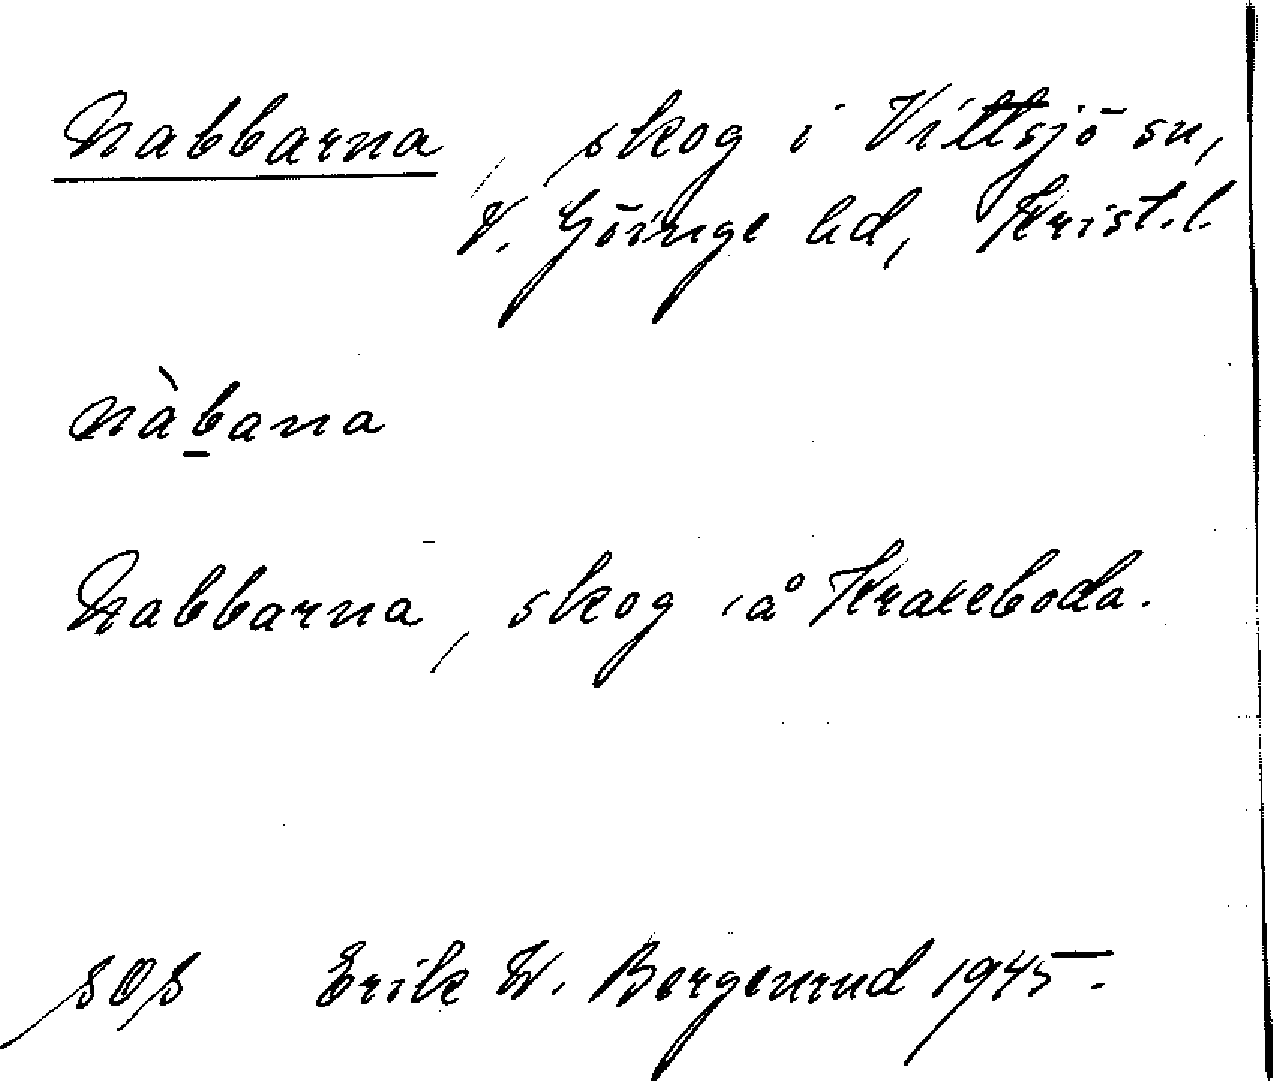 Nabbarna, skog i Vittsjö sn,
V. Göinge hd, Krist.l.
nàb̲ana
Nabbarna, skog å Krakeboda.
SOS Erik W. Bergenrud 1945.